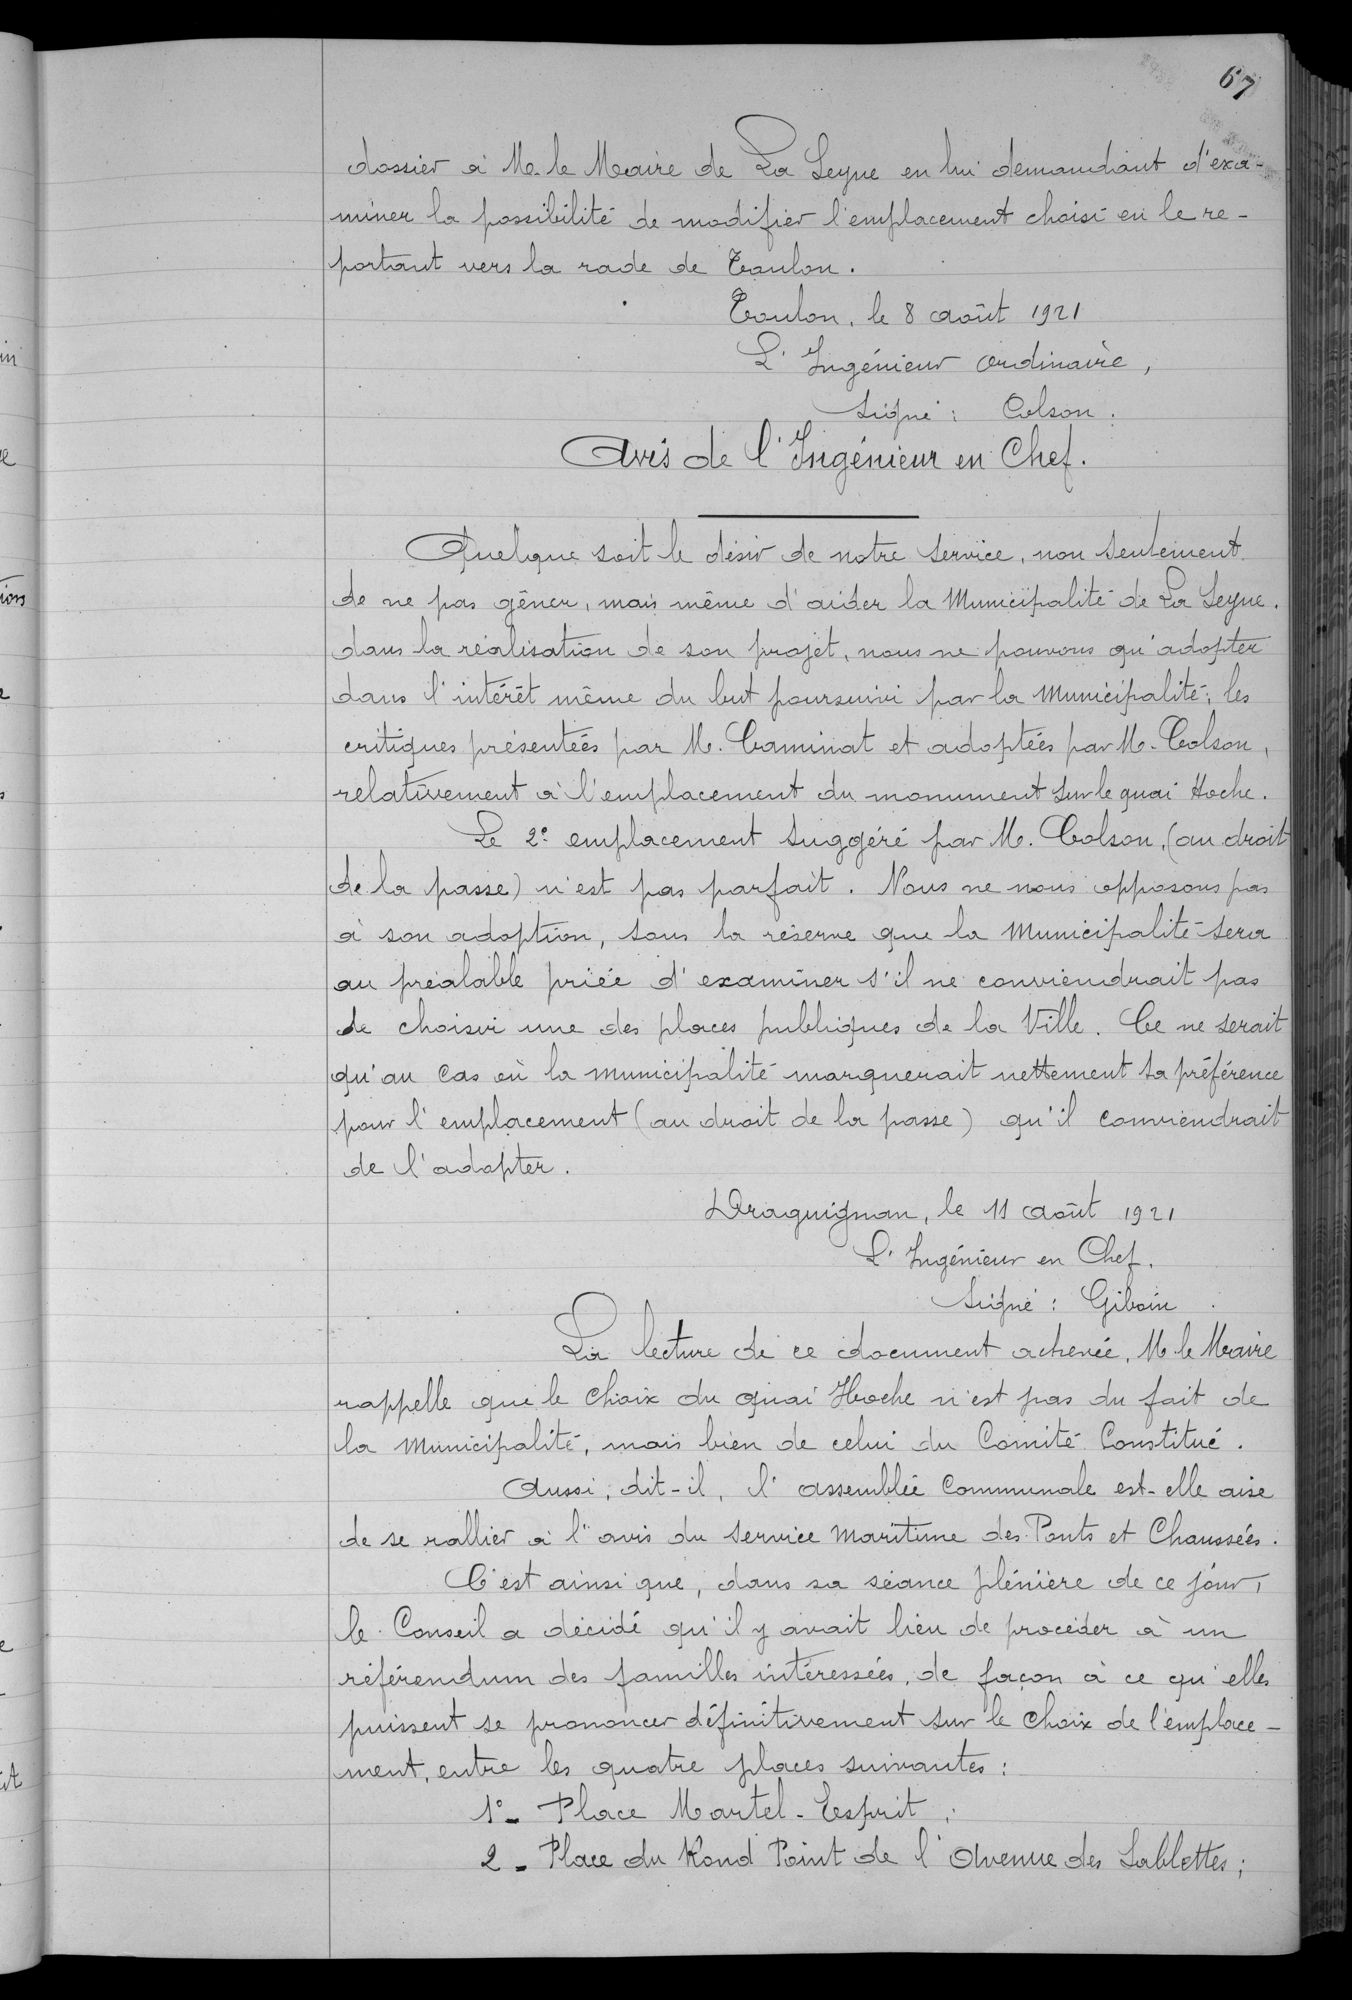 67
dossier à M. le Maire de La Seyne en lui demandant d'exa-
miner la possibilité de modifier l'emplacement choisi en le re-
portant vers la rade de Toulon.
Toulon, le 8 août 1921
L'Ingénieur Ordinaire,
Signé : Colson.
Avis de l'Ingénieur en Chef.
Quelque soit le désir de notre service, non seulement
de ne pas gêner, mais même d'aider la Municipalité de La Seyne.
dans la réalisation de son projet, nous ne pouvons qu'adopter
dans l'intérêt même du but poursuivi par la Municipalité, les
critiques présentées par M. Caminat et adoptées par M. Colson,
relativement à l'emplacement du monument sur le quai Hoche.
Le 2e emplacement suggéré par M. Colson, (au droit
de la passe) n'est pas parfait. Nous ne nous opposons pas
à son adoption, sous la réserve que la Municipalité sera
au préalable priée d'examiner s'il ne conviendrait pas
de choisir une des places publiques de la Ville. Ce ne serait
qu'au cas où la municipalité marquerait nettement sa préférence
pour l'emplacement (au droit de la passe) qu'il conviendrait
de l'adopter.
Draguignan, le 11 août 1921
L'Ingénieur en Chef.
Signé : Giboin
La lecture de ce document achevée, M le Maire
rappelle que le choix du quai Hoche n'est pas du fait de
la municipalité, mais bien de celui du Comité Constitué.
Aussi, dit-il, l'assemblée Communale est-elle aise
de se rallier à l'avis du Service Maritime des Ponts et Chaussées.
C'est ainsi que, dans sa séance plénière de ce jour,
le Conseil a décidé qu'il y avait lieu de procéder à un
référendum des familles intéressées, de façon à ce qu'elles
puissent se prononcer définitivement sur le choix de l'emplace-
ment, entre les quatre places suivantes :
1°- Place Martel-Esprit ;
2 - Place du Rond Point de l'Avenue des Sablettes ;